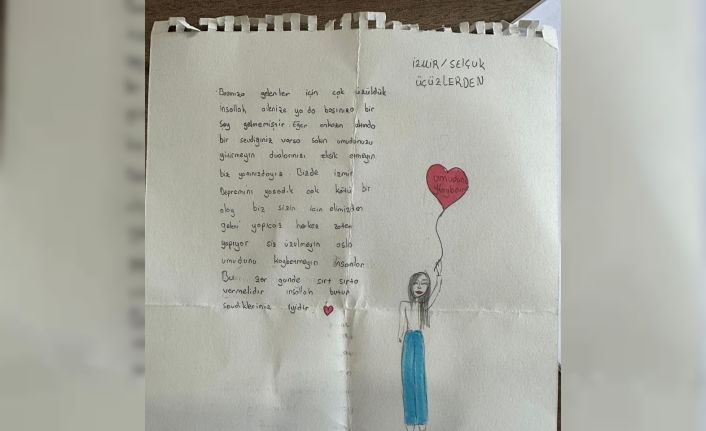 Başınıza gelenler için çok üzüldük
inşallah ailenize ya da başınıza bir
şey gelmemiştir Eğer enkazın altında
bir sevdiğiniz varsa sakın umudunuzu
yitirmeyin dualarınızı eksik etmeyin
biz yanınızdayız Bizde izmir
Depremini yaşadık çok kötü bir
olay biz sizin için elimizden
geleni yapıcaz herkez zaten
yapıyor siz üzülmeyin asla
umudunu kaybetmeyin insanlar
Bu zor günde sırt sırta
vermelidir inşallah bütün
sevdikleriniz iyidir
İZMİR/SELÇUK
ÜÇÜZLERDEN
umudunu
Kaybetme